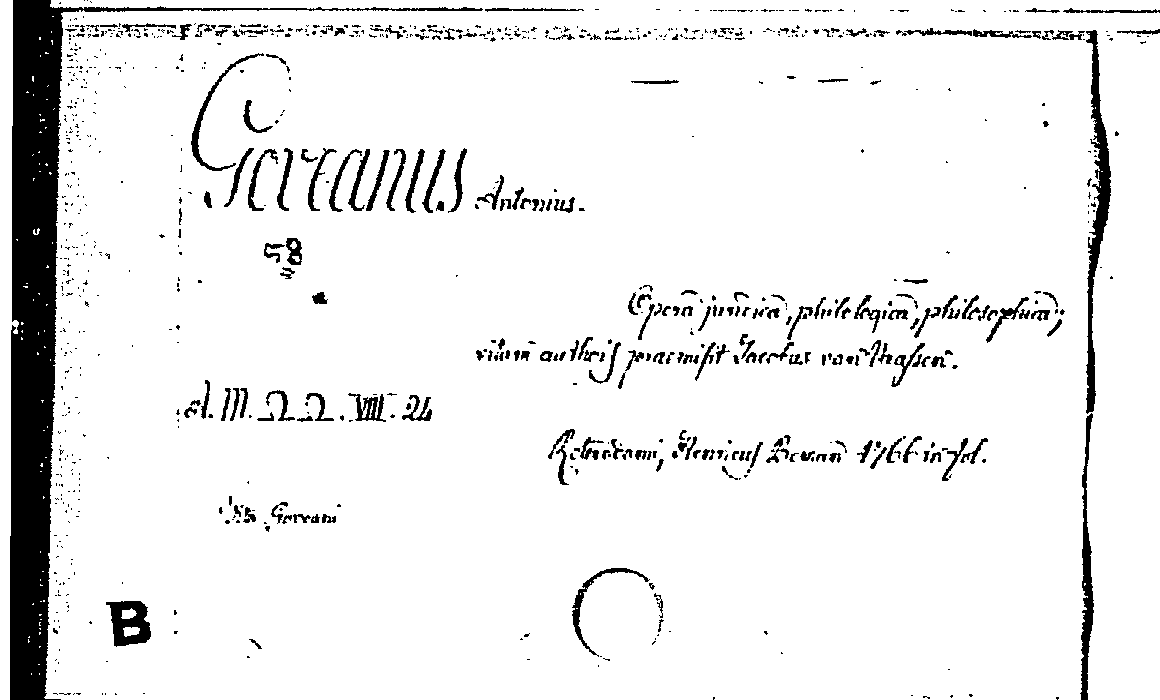 Goveanus Antonius.
58
Opera juridica, philologica, philosophica;
vitam authoris praemisit Jacobus van Vaassen.
al. III. Ω Ω. VIII. 24
Roterodami, Henricus Beman 1766 in fol.
Goveani
B